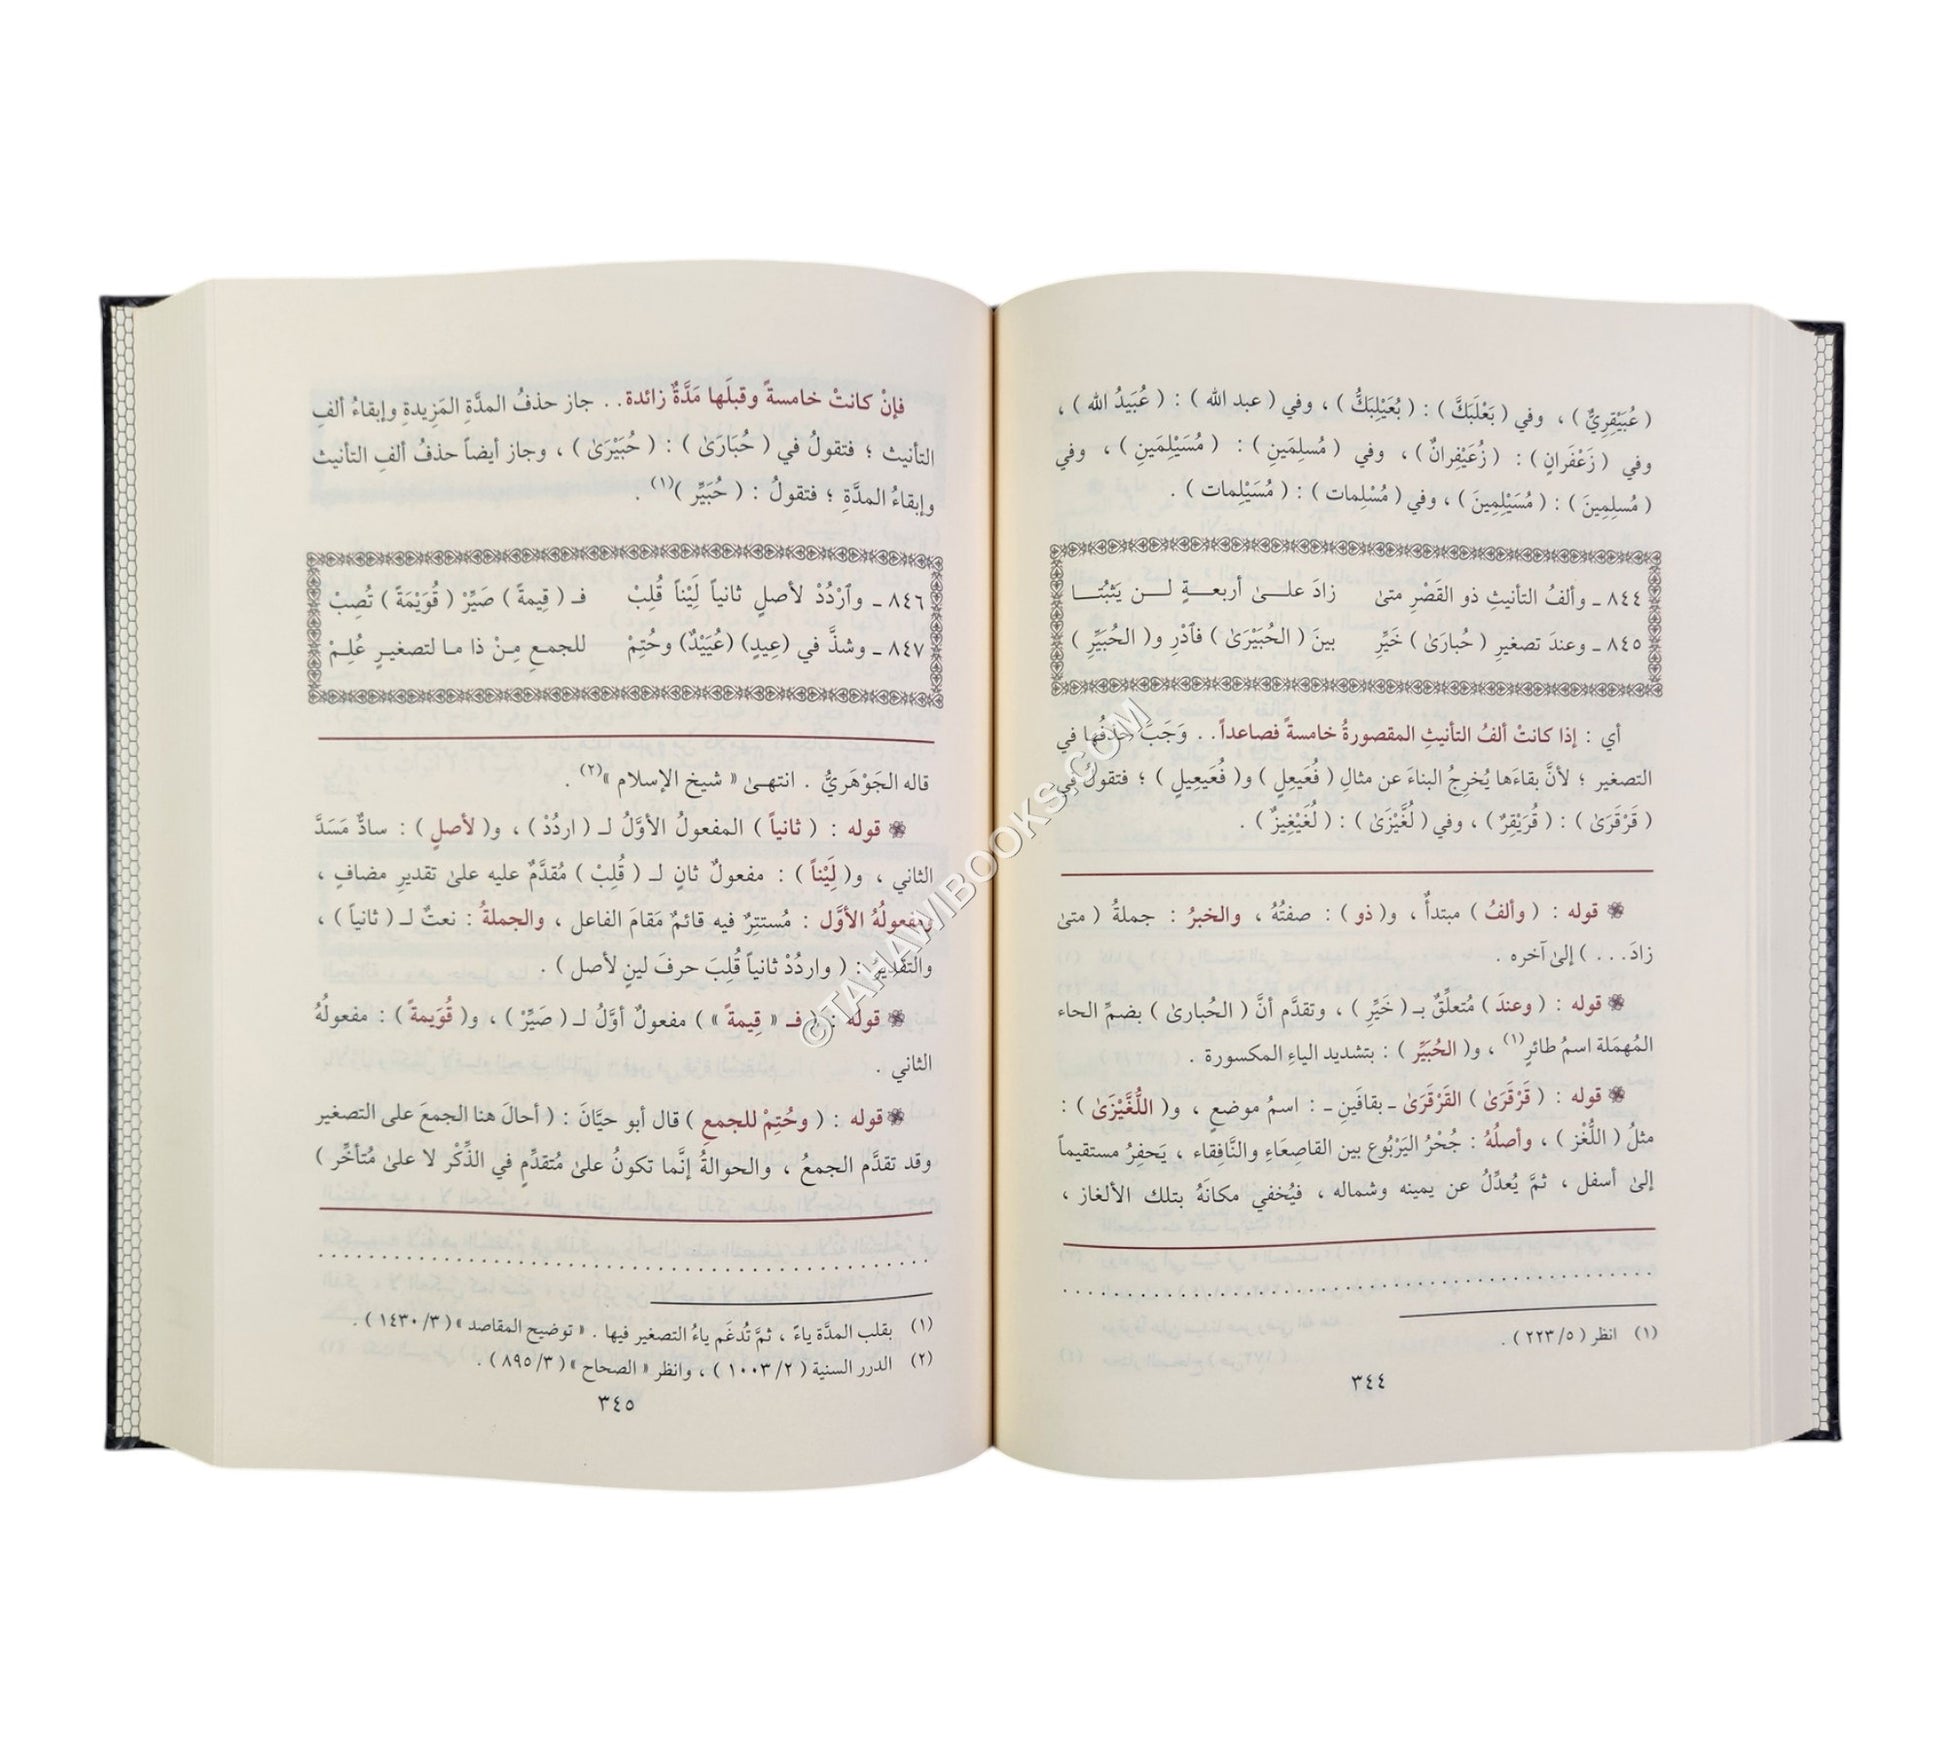 ( عُبَيْقِرِيٌّ ) ، وفي ( بَعْلَبَكَّ ) : ( بُعَيْلِبَكُّ ) ، وفي ( عبد الله ) : ( عُبَيدُ الله ) ،
وفي ( زَعْفَرانٍ ) : ( زُعَيْفِرانٌ ) ، وفي ( مُسلِمَينِ ) : ( مُسَيْلِمَينِ ) ، وفي
( مُسلِمِينَ ) : ( مُسَيْلِمِينَ ) ، وفي ( مُسْلِمات ) : ( مُسَيْلِمات ) .
٨٤٤ ـ وألفُ التأنيثِ ذو القَصْرِ متىٰ زادَ علـىٰ أربعـةٍ لـن يَثبُتـا
٨٤٥ ـ وعندَ تصغيرِ ( حُبارَىٰ ) خَيِّرِ بينَ ( الحُبَيْرَىٰ ) فٱدْرِ و( الحُبَيِّرِ )
أي : إذا كانتْ ألفُ التأنيثِ المقصورةُ خامسةً فصاعداً . . وَجَبَ حذفُها في
التصغير ؛ لأنَّ بقاءَها يُخرِجُ البناءَ عن مثالِ ( فُعَيعِلٍ ) و( فُعَيعِيلٍ ) ؛ فتقولُ في
( قَرْقَرَىٰ ) : ( قُرَيْقِرٌ ) ، وفي ( لُغَّيْزَىٰ ) : ( لُغَيْغِيزٌ ) .
❀ قوله : ( وألفُ ) مبتدأٌ ، و( ذو ) : صفتُهُ ، والخبرُ : جملةُ ( متىٰ
زادَ . . . ) إلىٰ آخره .
❀ قوله : ( وعندَ ) مُتعلِّقٌ بـ ( خَيِّرِ ) ، وتقدَّم أنَّ ( الحُبارىٰ ) بضمِّ الحاء
المُهمَلة اسمُ طائرٍ(١) ، و( الحُبَيِّر ) : بتشديد الياءِ المكسورة .
❀ قوله : ( قَرْقَرَىٰ ) القَرْقَرىٰ ـ بقافَينِ ـ : اسمُ موضعٍ ، و( اللُّغَّيْزَىٰ ) :
مثلُ ( اللُّغْز ) ، وأصلُهُ : جُحْرُ اليَرْبُوع بين القاصِعَاءِ والنَّافِقاء ، يَحفِرُ مستقيماً
إلىٰ أسفل ، ثمَّ يُعدِّلُ عن يمينه وشماله ، فيُخفي مكانَهُ بتلك الألغاز ،
. . . . . . . . . . . . . . . . . . . . . . . . . . . . . . . . . . . . . . . . . . . .
(١) انظر ( ٥/ ٢٢٣ ) .
٣٤٤
فإنْ كانتْ خامسةً وقبلَها مَدَّةٌ زائدة . . جاز حذفُ المدَّةِ المَزِيدةِ وإبقاءُ ألفِ
التأنيث ؛ فتقولُ في ( حُبَارَىٰ ) : ( حُبَيْرَىٰ ) ، وجاز أيضاً حذفُ ألفِ التأنيث
وإبقاءُ المدَّةِ ؛ فتقولُ : ( حُبَيِّر )(١) .
٨٤٦ ـ وٱرْدُدْ لأصلٍ ثانياً لَيْناً قُلِبْ فـ ( قِيمةً ) صَيِّرْ ( قُوَيْمَةً ) تُصِبْ
٨٤٧ ـ وشذَّ في (عِيدٍ) (عُيَيْدٌ) وحُتِمْ للجمـعِ مِـنْ ذا مـا لتصغيـرٍ عُلِـمْ
قاله الجَوْهَريُّ . انتهـىٰ « شيخ الإسلام »(٢) .
❀ قوله : ( ثانياً ) المفعولُ الأوَّلُ لـ ( اردُدْ ) ، و( لأصلٍ ) : سادٌّ مَسَدَّ
الثاني ، و( لَيْناً ) : مفعولٌ ثانٍ لـ ( قُلِبْ ) مُقدَّمٌ عليه علىٰ تقديرِ مضافٍ ،
ومفعولُهُ الأوَّل : مُستتِرٌ فيه قائمٌ مَقامَ الفاعل ، والجملةُ : نعتٌ لـ ( ثانياً ) ،
والتقديرُ : ( واردُدْ ثانياً قُلِبَ حرفَ لينٍ لأصل ) .
❀ قوله : ( فـ « قِيمةً » ) مفعولٌ أوَّلُ لـ ( صَيِّرْ ) ، و( قُوَيمةً ) : مفعولُهُ
الثاني .
❀ قوله : ( وحُتِمْ للجمعِ ) قال أبو حيَّانَ : ( أحالَ هنا الجمعَ على التصغير
وقد تقدَّم الجمعُ ، والحوالةُ إنَّما تكونُ علىٰ مُتقدِّمٍ في الذِّكْر لا علىٰ مُتأخِّر )
. . . . . . . . . . . . . . . . . . . . . . . . . . . . . . . . . . . . . . . . . . . .
(١) بقلب المدَّة ياءً ، ثمَّ تُدغَم ياءُ التصغير فيها . « توضيح المقاصد » ( ٣/ ١٤٣٠ ) .
(٢) الدرر السنية ( ٢/ ١٠٠٣ ) ، وانظر « الصحاح » ( ٣/ ٨٩٥ ) .
٣٤٥
©TAHAWIBOOKS.COM